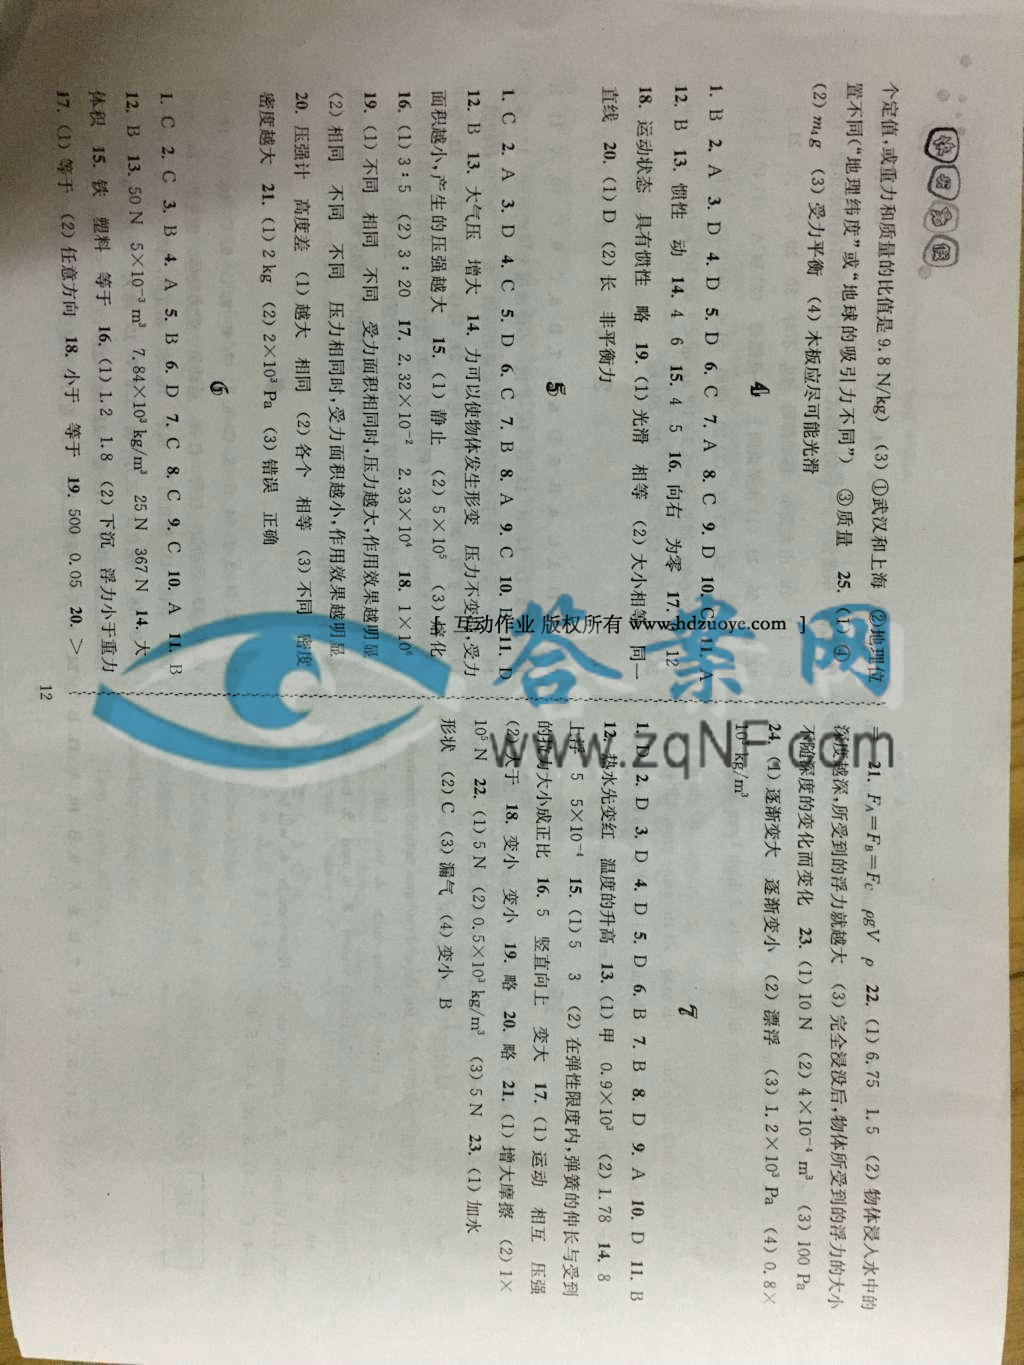 快乐寒假
个定值,或重力和质量的比值是9.8 N/kg) (3)①武汉和上海 ②地理位
置不同(“地理纬度”或“地球的吸引力不同”) ③质量 25. (1)④
(2)m₄g (3)受力平衡 (4)木板应尽可能光滑
4
1. B 2. A 3. D 4. D 5. D 6. C 7. A 8. C 9. D 10. C 11. A
12. B 13. 惯性 动 14. 4 6 15. 4 5 16. 向右 为零 17. 12
18. 运动状态 具有惯性 略 19. (1)光滑 相等 (2)大小相等 同一
直线 20. (1)D (2)长 非平衡力
5
1. C 2. A 3. D 4. C 5. D 6. C 7. B 8. A 9. C 10. B 11. D
12. B 13. 大气压 增大 14. 力可以使物体发生形变 压力不变时,受力
面积越小,产生的压强越大 15. (1)静止 (2)5×10⁵ (3)熔化
16. (1)3∶5 (2)3∶20 17. 2.32×10⁻² 2.33×10⁴ 18. 1×10⁶
19. (1)不同 相同 不同 受力面积相同时,压力越大,作用效果越明显
(2)相同 不同 不同 压力相同时,受力面积越小,作用效果越明显
20. 压强计 高度差 (1)越大 相同 (2)各个 相等 (3)不同 密度
密度越大 21. (1)2 kg (2)2×10³ Pa (3)错误 正确
6
1. C 2. C 3. B 4. A 5. B 6. D 7. C 8. C 9. C 10. A 11. B
12. B 13. 50 N 5×10⁻³ m³ 7.84×10³ kg/m³ 25 N 367 N 14. 大
体积 15. 铁 塑料 等于 16. (1)1.2 1.8 (2)下沉 浮力小于重力
17. (1)等于 (2)任意方向 18. 小于 等于 19. 500 0.05 20. >
= 21. F_A=F_B=F_C ρgV ρ 22. (1)6.75 1.5 (2)物体浸入水中的
深度越深,所受到的浮力就越大 (3)完全浸没后,物体所受到的浮力的大小
不随深度的变化而变化 23. (1)10 N (2)4×10⁻⁴ m³ (3)100 Pa
24. (1)逐渐变大 逐渐变小 (2)漂浮 (3)1.2×10³ Pa (4)0.8×
10³ kg/m³
7
1. D 2. D 3. D 4. D 5. D 6. B 7. B 8. D 9. A 10. D 11. B
12. 热水先变红 温度的升高 13. (1)甲 0.9×10³ (2)1.78 14. 8
上浮 5 5×10⁻⁴ 15. (1)5 3 (2)在弹性限度内,弹簧的伸长与受到
的拉力大小成正比 16. 5 竖直向上 变大 17. (1)运动 相互 压强
(2)大于 18. 变小 变小 19. 略 20. 略 21. (1)增大摩擦 (2)1×
10⁵ N 22. (1)5 N (2)0.5×10³ kg/m³ (3)5 N 23. (1)加水
形状 (2)C (3)漏气 (4)变小 B
12
互动作业 版权所有 www.hdzuoye.com ]
答案网
www.zqNF.com